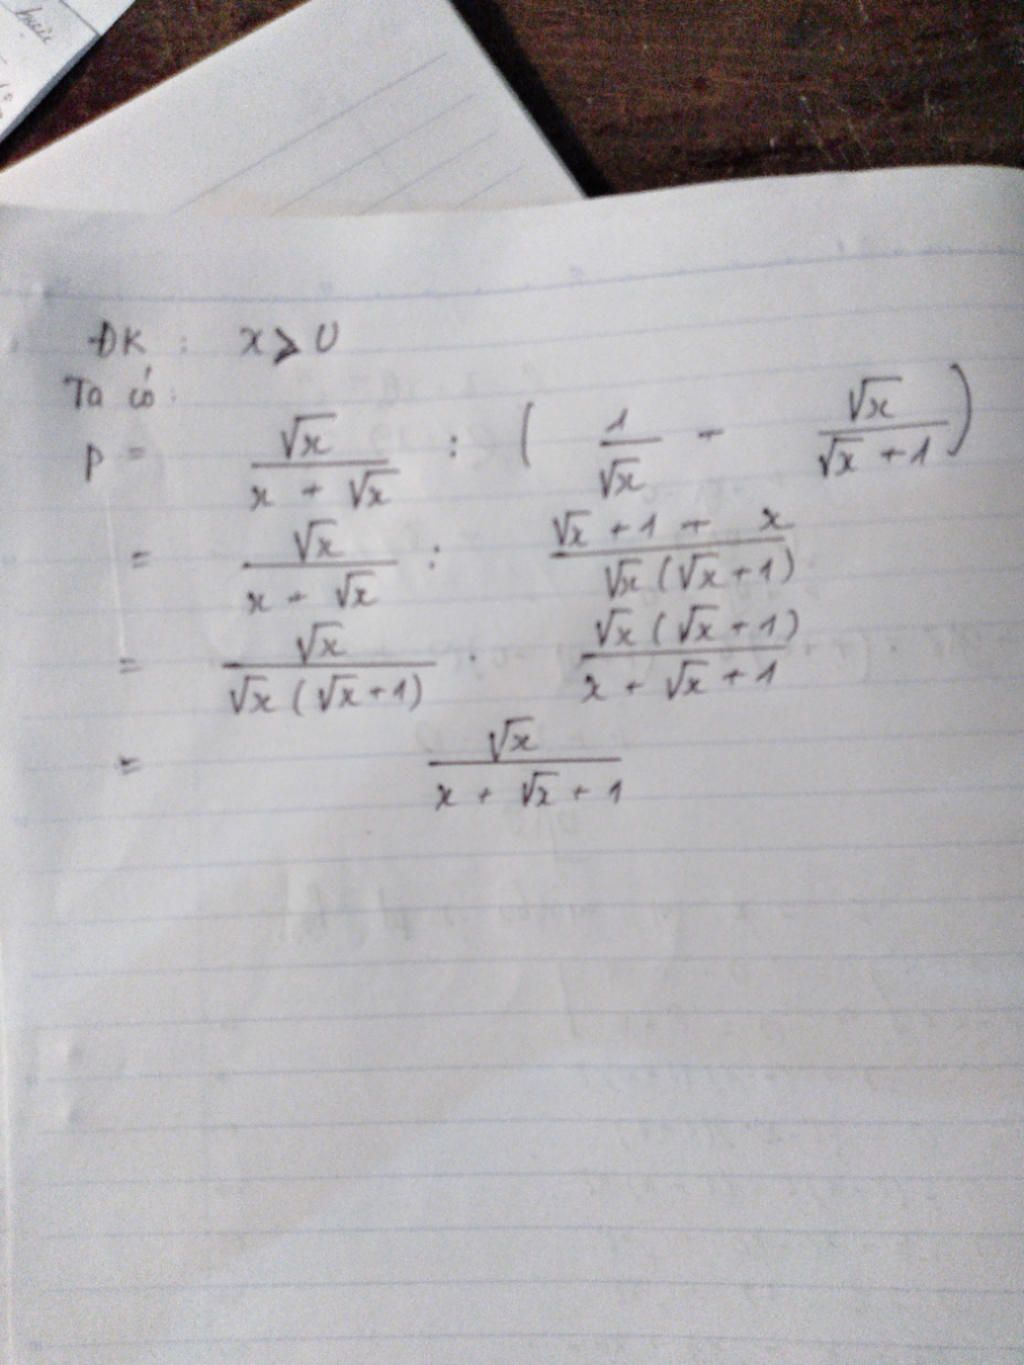 ĐK : x ⩾ 0
Ta có:
P = √x / (x + √x) : ( 1/√x - √x / (√x + 1) )
= √x / (x + √x) : (√x + 1 + x) / (√x (√x + 1))
= √x / (√x (√x + 1)) . √x (√x + 1) / (x + √x + 1)
= √x / (x + √x + 1)